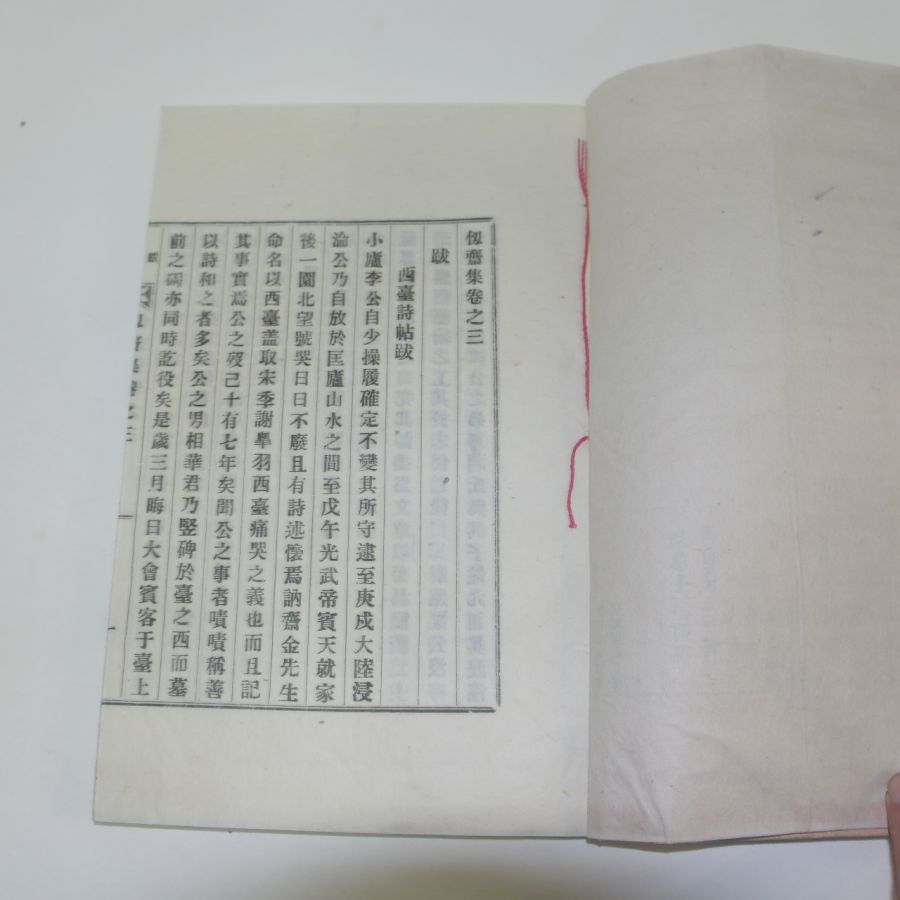 仭齋集卷之三
跋
西臺詩帖跋
小廬李公自少操履確定不變其所守逮至庚戍大陸浸
淪公乃自放於匡廬山水之間至戊午光武帝賓天就家
後一園北望號哭日日不廢且有詩述懷焉訥齋金先生
命名以西臺盖取宋季謝皐羽西臺痛哭之義也而且記
其事實焉公之歿己十有七年矣聞公之事者嘖嘖稱善
以詩和之者多矣公之男相華君乃竪碑於臺之西而墓
前之碣亦同時訖役矣是歲三月晦日大會賓客于臺上
卷之三
一